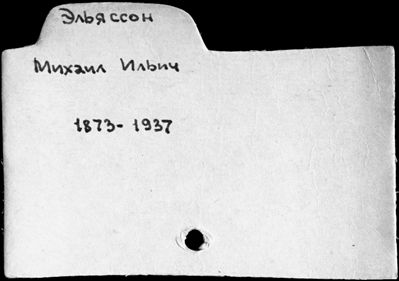 Эльяссон
Михаил Ильич
1873- 1937